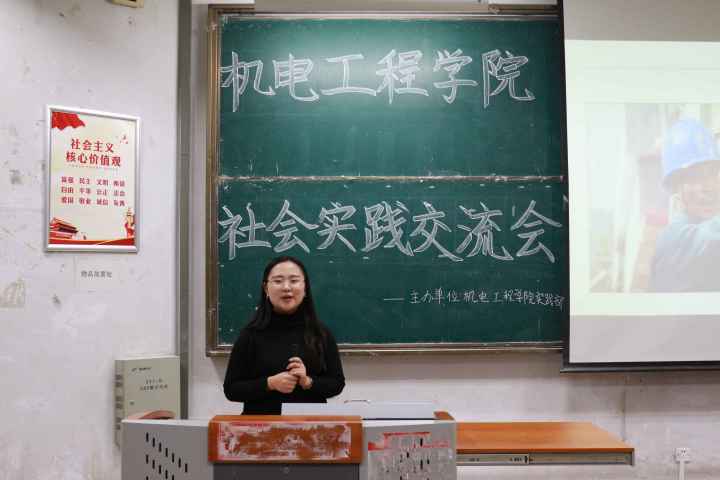 机电工程学院
社会实践交流会
——主办单位 机电工程学院实践部
社会主义
核心价值观
富强 民主 文明 和谐
自由 平等 公正 法治
爱国 敬业 诚信 友善
物品放置处